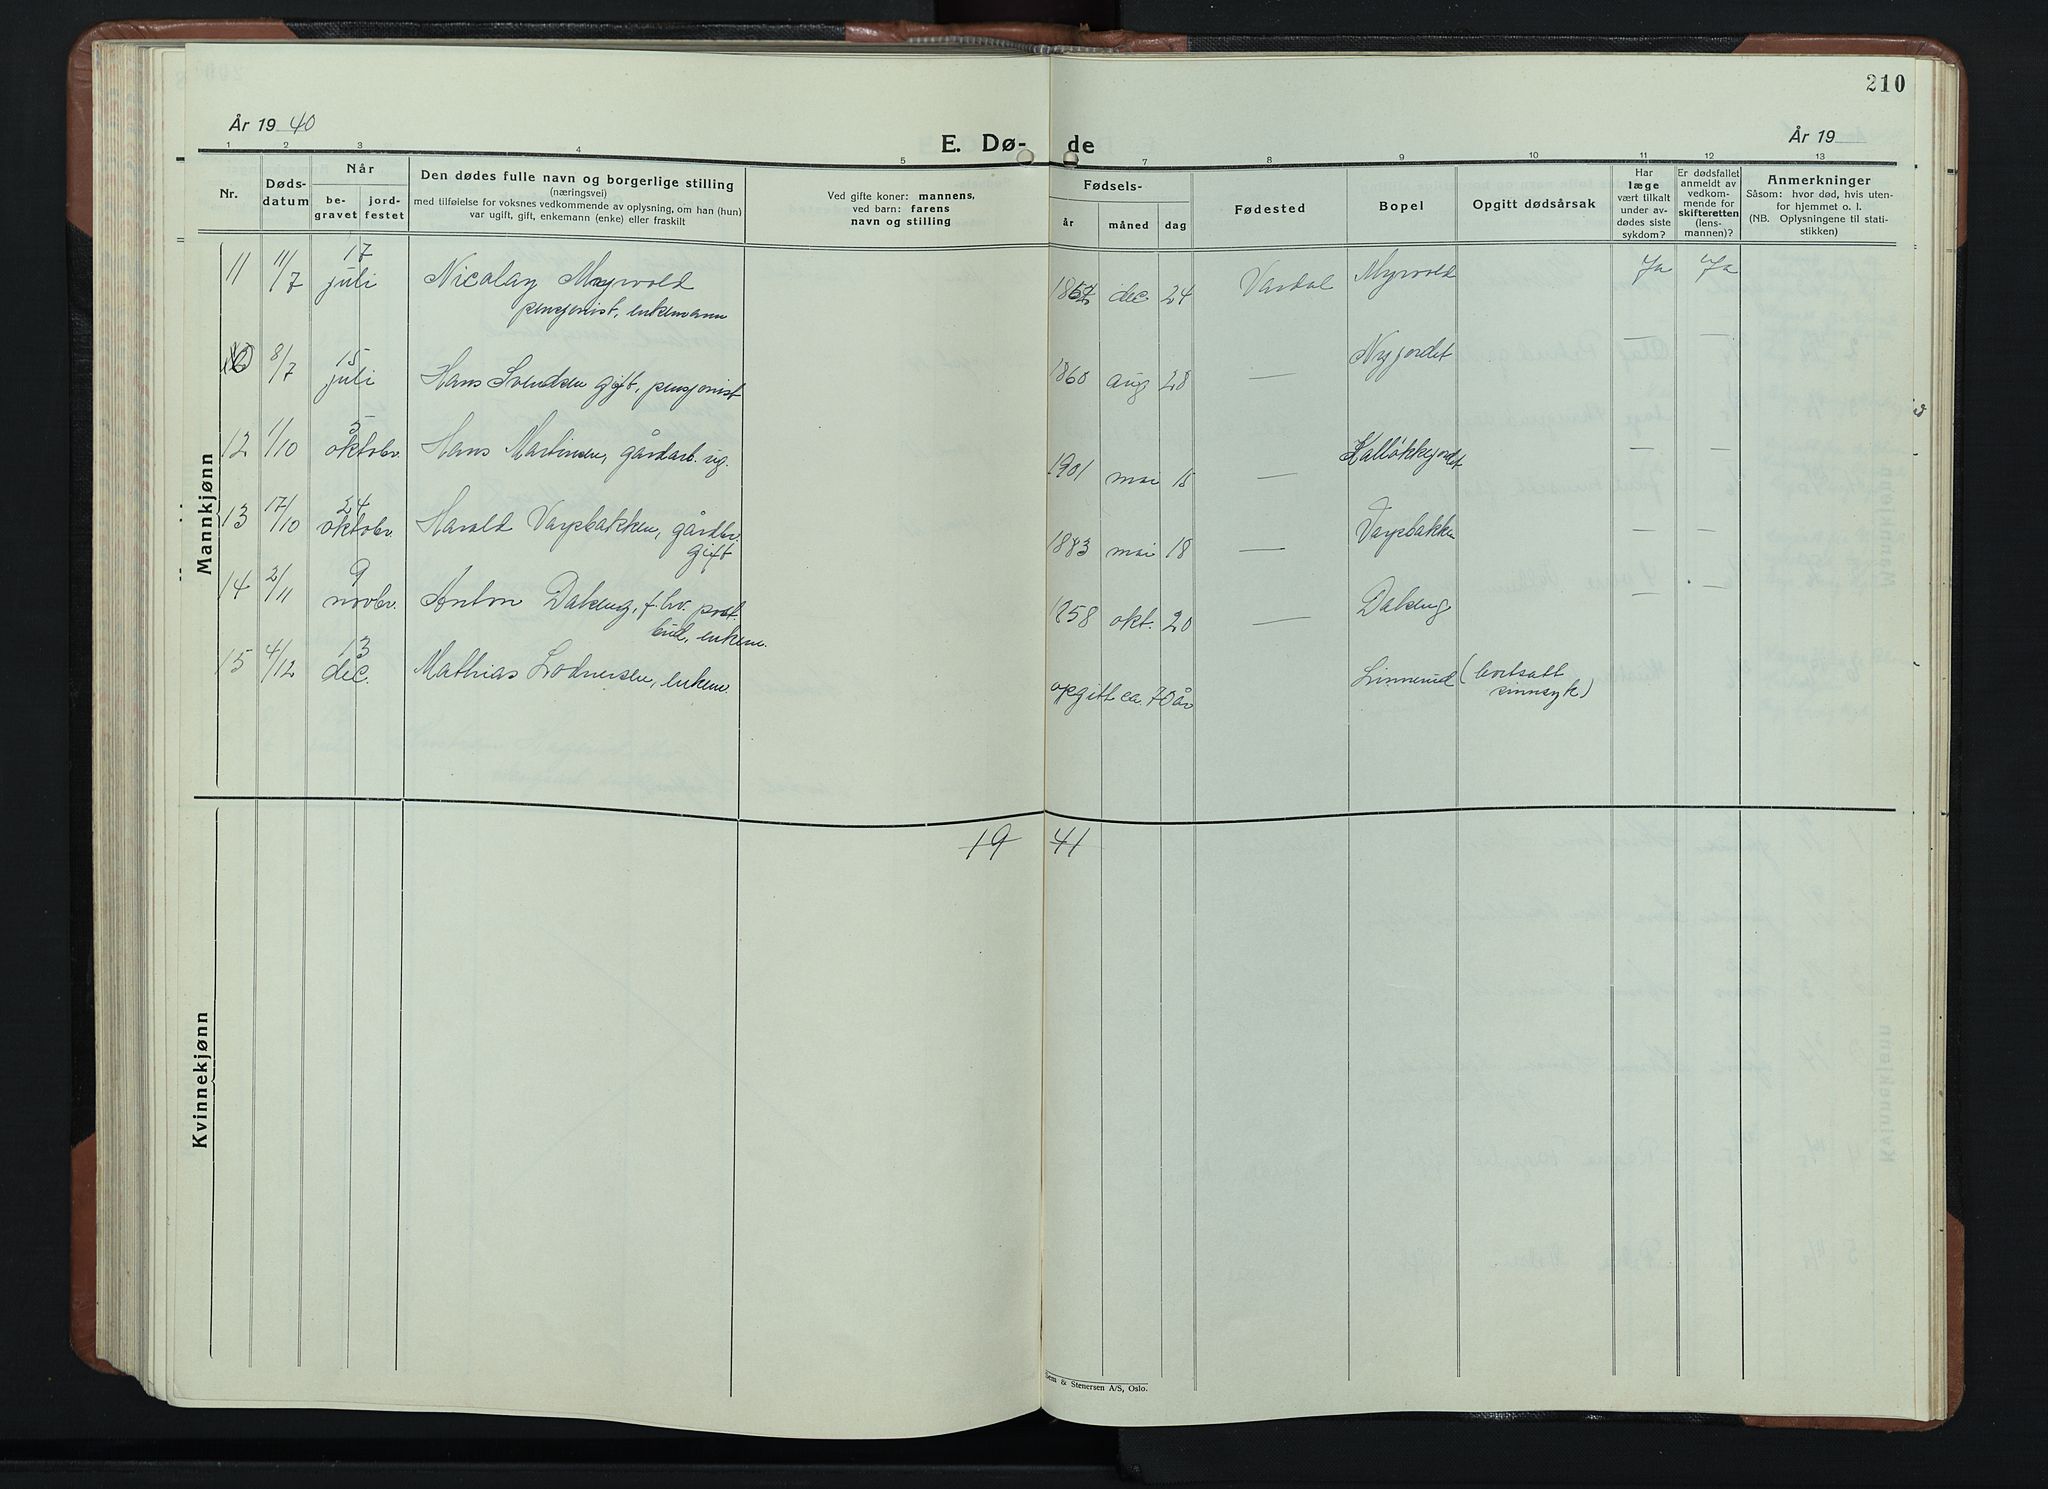 210
År 19 40
E. Dø- de
År 19
1 2 3 4 5 7 8 9 10 11 12 13
Nr.
Døds-
datum
Når
be-
gravet
jord-
festet
Den dødes fulle navn og borgerlige stilling
(næringsvei)
med tilføielse for voksnes vedkommende av oplysning, om han (hun)
var ugift, gift, enkemann (enke) eller fraskilt
Ved gifte koner: mannens,
ved barn: farens
navn og stilling
Fødsels-
år
måned
dag
Fødested
Bopel
Opgitt dødsårsak
Har
læge
vært tilkalt
under av-
dødes siste
sykdom?
Er dødsfallet
anmeldt av
vedkom-
mende for
skifteretten
(lens-
mannen)?
Anmerkninger
Såsom: hvor død, hvis uten-
for hjemmet o. l.
(NB. Oplysningene til stati-
stikken)
Mannkjønn
11 11/7 17 juli Nicolay Myrvold 1857 dec. 24 Vardal Myrvold Ja Ja
pensjonist, enkemann
8/7 15 juli Hans Svendsen gift, pensjonist 1860 aug 28 — Nygjordet — —
12 1/10 5 oktobr. Hans Martinsen, gårdarb. ug. 1901 mai 15 — Kalløkkejordet — —
13 17/10 24 oktobr. Harald Varpbakken, gårdbr. 1883 mai 18 — Varpbakken — —
gift
14 2/11 9 novbr. Anton Dakeng, f. hv. post- 1858 okt. 20 — Dakeng — —
bud, enkem.
15 4/12 13 dec. Mathias Lodversen, enkem opgitt ca. 70 år Linnerud (bortsatt
sinnsyk)
19 41
Kvinnekjønn
Sem & Stenersen A/S, Oslo.